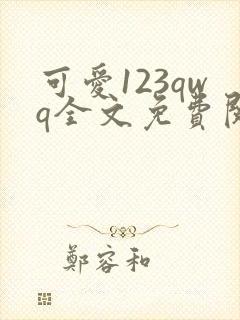 可愛123qw
q全文免費閱
鄭容和